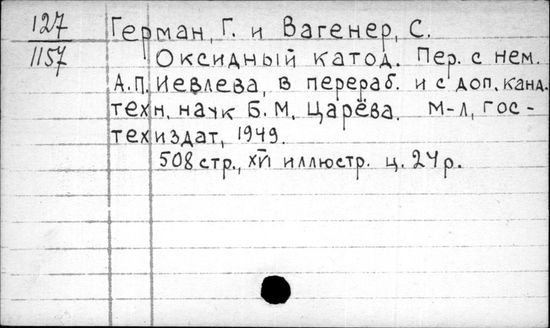 127 Герман, Г. и Вагенер, С.
1157 Оксидный катод. Пер. с нем.
А.П. Иевлева, в перераб. и с доп. канд.
техн. наук Б.М. Царёва. М-Л, Гос-
техиздат, 1949.
508 стр., иллюстр. ц. 24 р.